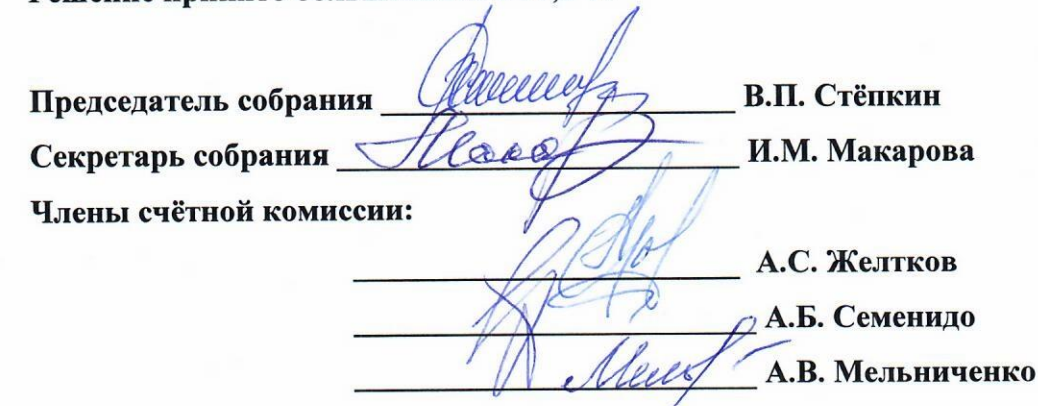 Председатель собрания В.П. Стёпкин
Секретарь собрания И.М. Макарова
Члены счётной комиссии:
А.С. Желтков
А.Б. Семенидо
А.В. Мельниченко